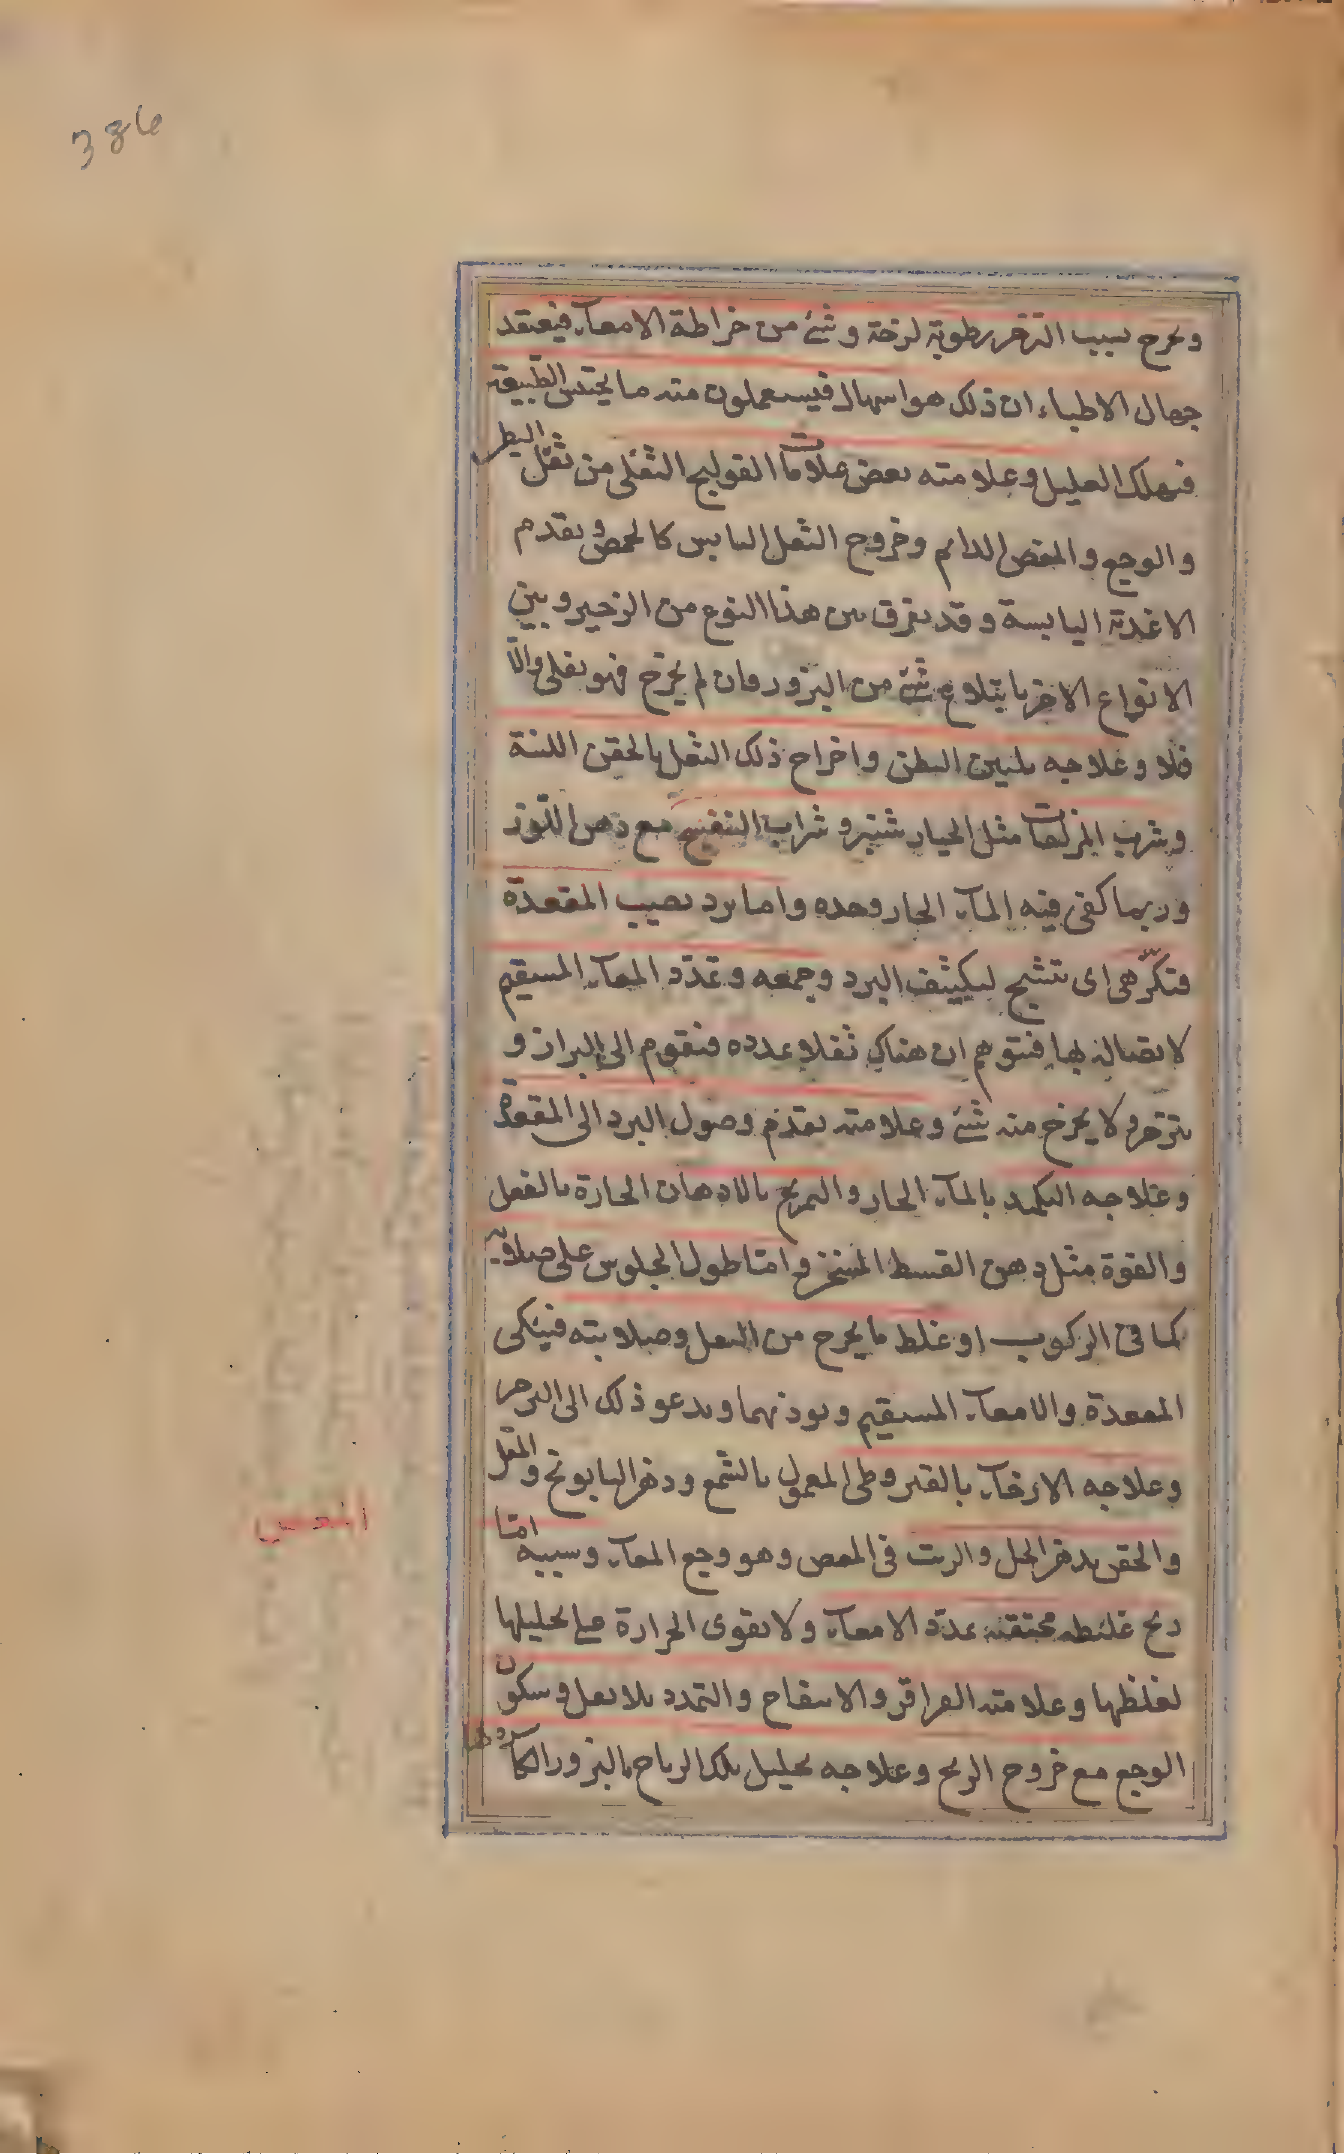 386
ويخرج بسبب التزحر رطوبة لزجة وشئ من خراطة الامعآء فيعتقد
جهال الاطباء ان ذلك هو اسهال فيستعملون منه ما يحتبس الطبيعة
فيهلك العليل وعلامته بعض علامات القولنج الثفلى من ثقل البطن
والوجع والمغص الدائم وخروج الثفل اليابس كالحمص وتقدم
الاغذية اليابسة وقد يفرق بين هذا النوع من الزحير وبين
الانواع الاخر بابتلاع شئ من البزور فان لم يخرج فهو ثفلى والّا
فلا وعلاجه تليين البطن واخراج ذلك الثفل بالحقن اللينة
وشرب المزلقات مثل الخيار شنبر وشراب البنفسج مع دهن اللوز
وربما كفى فيه المآء الحار وحده واما برد يصيب المقعدة
فتكزّ هى اى تتشنج لتكثيف البرد وجمعه وتمدّد المعآء المستقيم
لاتصاله بها فيتوهم ان هناك ثفلا يمدده فيقوم الى البراز و
يتزحر ولا يخرج منه شئ وعلامته تقدم وصول البرد الى المقعدة
وعلاجه التكميد بالمآء الحار والتمريخ بالادهان الحارة بالفعل
والقوة مثل دهن القسط المسخن واما طول الجلوس على صلابة
كما فى الركوب او غلظ ما يخرج من الثفل وصلابته فينكى
المقعدة والامعآء المستقيم ويوذيهما ويدعو ذلك الى التزحر
وعلاجه الارخآء بالقيروطى المعمول بالشمع ودهن البابونج والمقل
والحقن بدهن الحل والزيت فى المغص وهو وجع المعآء وسببه امّا
ريح غليظه محتقنه تمدّد الامعآء ولا يقوى الحرارة على تحليلها
لغلظها وعلامته القراقر والانتفاخ والتمدد بلا ثقل وسكون
الوجع مع خروج الريح وعلاجه تحليل تلك الرياح بالبزور الكآ
سردها
المغص